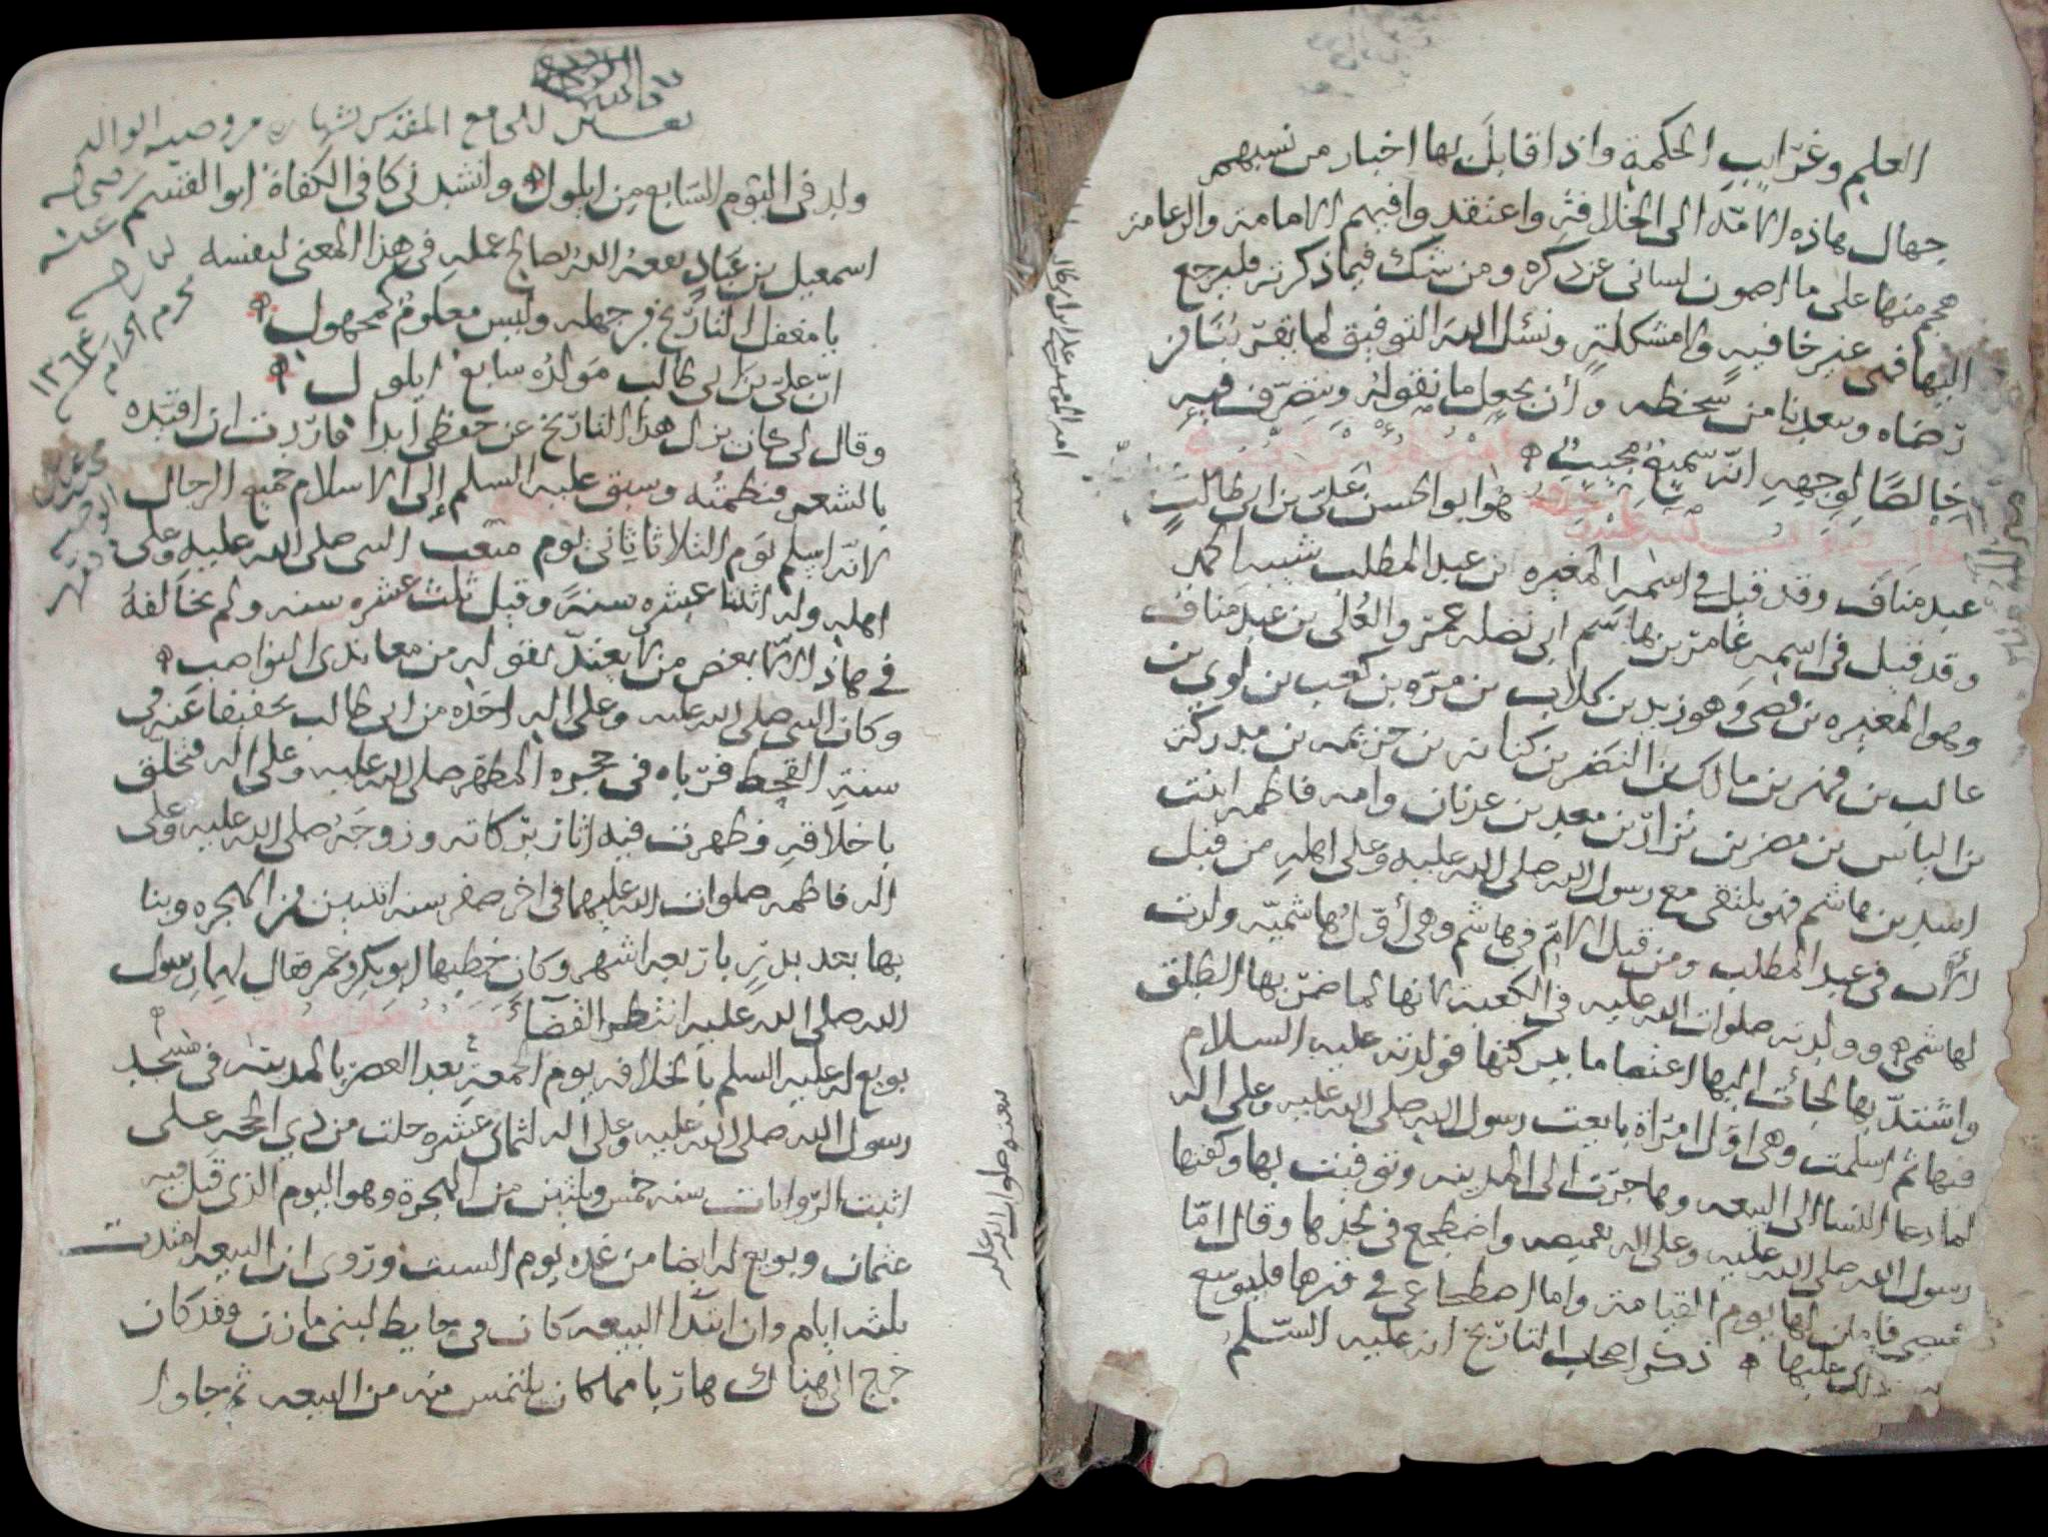 العلم وغرايب الحكمة واذا قابل بها اخبار من نسبهم
جهال هاذه الامة الى الخلافة واعتقدوا فيهم الامامة والزعامة
هجم منها على ما اصون لساني عن ذكره ومن شك فيما ذكرته فليرجع
اليها فهي غير خافية ولا مشكلة ونسئل الله التوفيق لما يقربنا من
رضاه ويبعدنا من سخطه وأن يجعل ما نقوله ونتصرف فيه
خالصًا لوجهه انه سميع مجيب
هو ابو الحسن علي بن ابي طالب
عبد مناف وقد قيل في اسمه المغيره بن عبد المطلب شيبه الحمد
وقد قيل في اسمه عامر بن هاشم ابي نضله عمرو العلى بن عبد مناف
وهو المغيره بن قصي وهو زيد بن كلاب بن مره بن كعب بن لوي بن
غالب بن فهر بن مالك بن النضر بن كنانه بن خزيمه بن مدركة
بن الياس بن مضر بن نزار بن معد بن عدنان وامه فاطمه ابنت
اسد بن هاشم فهو يلتقي مع رسول الله صلى الله عليه وعلى اهله من قبل
الأب في عبد المطلب ومن قبل الام في هاشم وهي أول هاشميه ولدت
لهاشمي وولدته صلوات الله عليه في الكعبة لانها لما ضربها الطلق
واشتد بها لجأت اليها اعتصاما ببركتها فولدته عليه السلام
فيها ثم اسلمت وهي اول امراة بايعت رسول الله صلى الله عليه وعلى اله
لما دعا النسا الى البيعه وهاجرت الى المدينه وتوفيت بها وكفنها
رسول الله صلى الله عليه وعلى اله بقميصه واضطجع في لحدها وقال امّا
قميصي فامان لها يوم القيامة واما اضطجاعي في قبرها فليوسع
ذلك عليها ذكر اصحاب التاريخ انه عليه السلم
ولد في اليوم السابع من ايلول وانشدني كافي الكفاة ابو القسم
اسمعيل بن عباد نفعه الله بصالح عمله في هذا المعنى لنفسه
يا مغفل التاريخ من جهله وليس معلوم كمجهول
انّ علي بن ابي طالب مولده سابع ايلول
وقال لي كان يزل هذا التاريخ عن حفظي أبدا فاردت ان اقيده
بالشعر فنظمته وسبق عليه السلم إلى الاسلام جميع الرجال
لانه اسلم يوم الثلاثا ثاني يوم مبعث النبي صلى الله عليه وعلى
اهله وله اثنتا عشره سنة وقيل ثلث عشره سنه ولم يخالف
في هاذا الا بعض من لا يعتد بقوله من معاندي النواصب
وكان النبي صلى الله عليه وعلى اله اخذه من ابي طالب تخفيفا عنه في
سنة القحط فرباه في حجره المطهر صلى الله عليه وعلى اله فتخلق
باخلاقه وظهرت فيه اثار بركاته وزوجه صلى الله عليه وعلى
اله فاطمه صلوات الله عليهما في اخر صفر سنه اثنين من الهجره وبنا
بها بعد بدر باربعه اشهر وكان خطبها ابو بكر وعمر فقال لهما رسول
الله صلى الله عليه انتظر القضاء
بويع له عليه السلم بالخلافه يوم الجمعة بعد العصر بالمدينه في مسجد
رسول الله صلى الله عليه وعلى اله لثمان عشره خلت من ذي الحجه على
اثبت الروايات سنه خمس وثلثين من الهجرة وهو اليوم الذي قتل فيه
عثمان وبويع له ايضا من غده يوم السبت وروي ان البيعه امتدت
ثلثه ايام وان ابتدا البيعه كان في حايط لبني مازن وقد كان
خرج الى هناك هاربا مما كان يلتمس منه من البيعه ثم جاوا